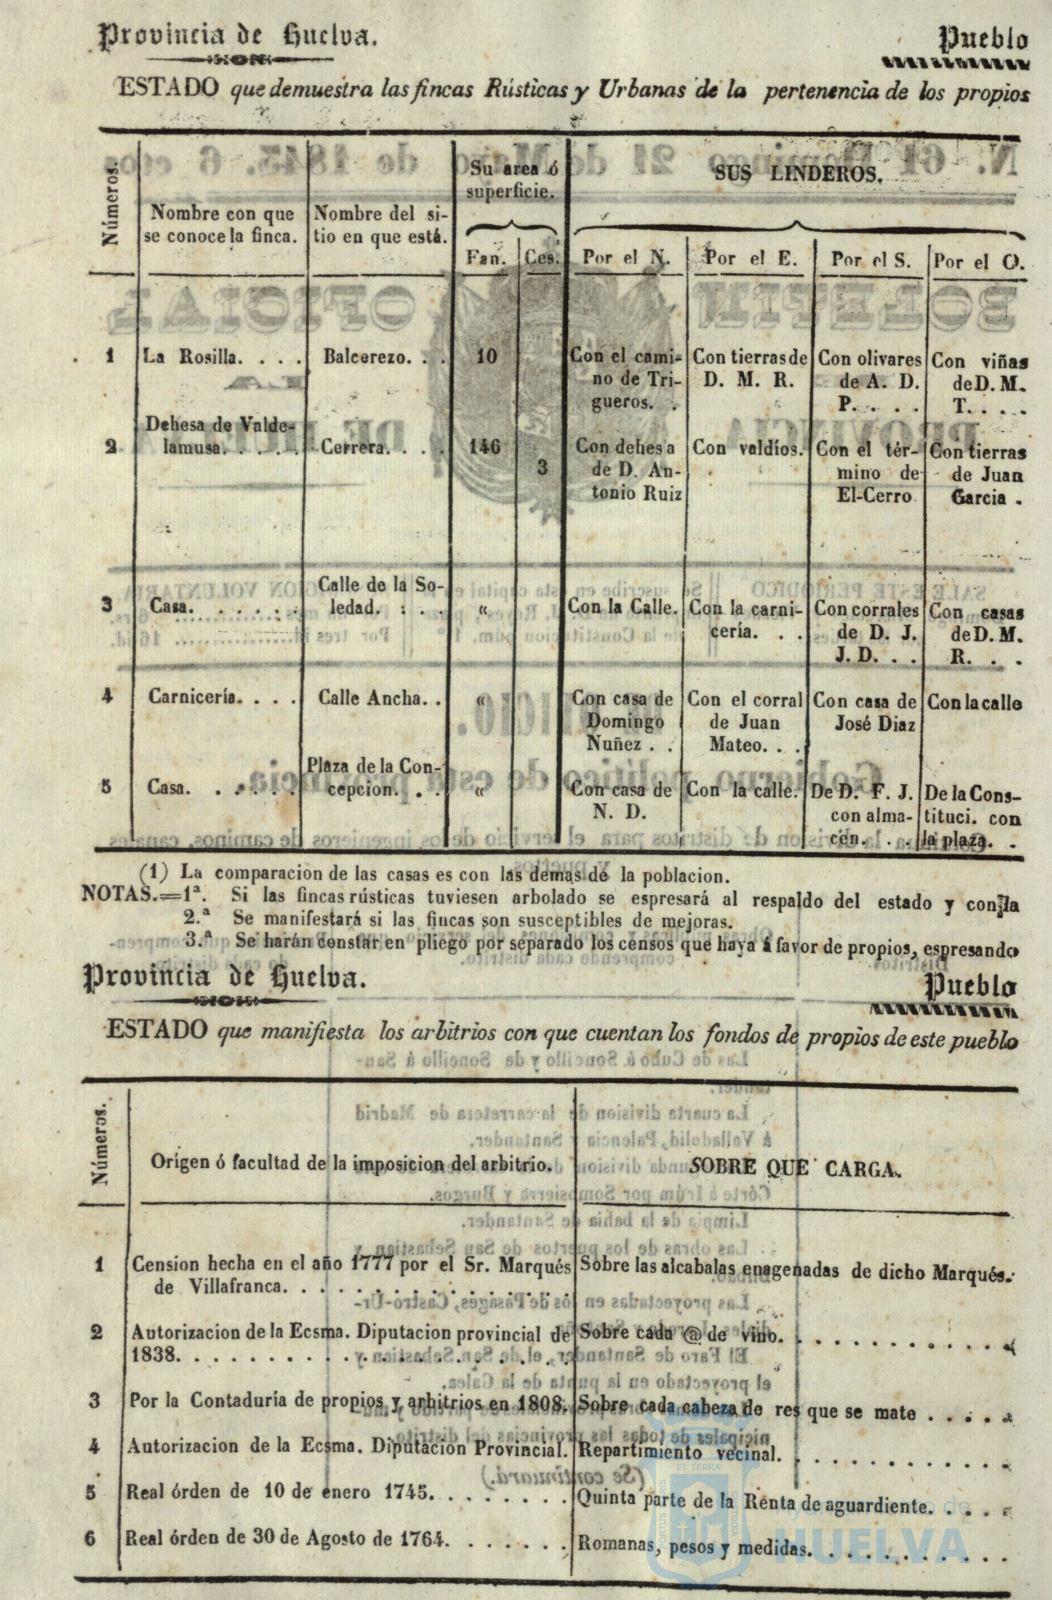 Provincia de Huelva. Pueblo
ESTADO que demuestra las fincas Rústicas y Urbanas de la pertenencia de los propios
Números. Nombre con que se conoce la finca. Nombre del si- tio en que está. Su area ó superficie. SUS LINDEROS.
Fan. Ces. Por el N. Por el E. Por el S. Por el O.
1 La Rosilla. . . . Balcerezo. . . 10 Con el cami- Con tierras de Con olivares Con viñas
no de Tri- D. M. R. de A. D. de D. M.
gueros. . P. . . . T. . . .
Dehesa de Valde-
2 lamusa. . . . . Cerrera. . . . 146 Con dehesa Con valdíos. Con el tér- Con tierras
3 de D. An- mino de de Juan
tonio Ruiz El-Cerro Garcia .
Calle de la So-
3 Casa. . . . . . ledad. . . . « Con la Calle. Con la carni- Con corrales Con casas
cería. . . de D. J. de D. M.
J. D. . . R. . .
4 Carnicería. . . . Calle Ancha. . « Con casa de Con el corral Con casa de Con la calle
Domingo de Juan José Diaz
Nuñez . . Mateo. . .
Plaza de la Con-
5 Casa. . . . . . cepcion. . . « Con casa de Con la calle. De D. F. J. De la Cons-
N. D. con alma- tituci. con
cen. . . la plaza. .
(1) La comparacion de las casas es con las demas de la poblacion.
NOTAS.=1ª. Si las fincas rústicas tuviesen arbolado se espresará al respaldo del estado y con la
2.ª Se manifestará si las fincas son susceptibles de mejoras.
3.ª Se harán constar en pliego por separado los censos que haya á favor de propios, espresando
Provincia de Huelva. Pueblo
ESTADO que manifiesta los arbitrios con que cuentan los fondos de propios de este pueblo
Números. Orígen ó facultad de la imposicion del arbitrio. SOBRE QUE CARGA.
1 Cension hecha en el año 1777 por el Sr. Marqués Sobre las alcabalas enagenadas de dicho Marqués.
de Villafranca. . . . . . . . . . . . . .
2 Autorizacion de la Ecsma. Diputacion provincial de Sobre cada @ de vino. . . . . . . . . . .
1838. . . . . . . . . . . . . . . . . . .
3 Por la Contaduría de propios y arbitrios en 1808. Sobre cada cabeza de res que se mate . . . . .
4 Autorizacion de la Ecsma. Diputacion Provincial. Repartimiento vecinal. . . . . . . . . . .
5 Real órden de 10 de enero 1745. . . . . . . . Quinta parte de la Renta de aguardiente. . . . .
6 Real órden de 30 de Agosto de 1764. . . . . . . Romanas, pesos y medidas. . . . . . . . . . .
HUELVA